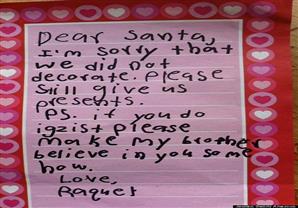 Dear Santa,
I'm sorry that
we did not
decorate. Please
still give us
presents.
PS. if you do
igzist please
make my brother
believe in you some
how.
Love,
Raquel